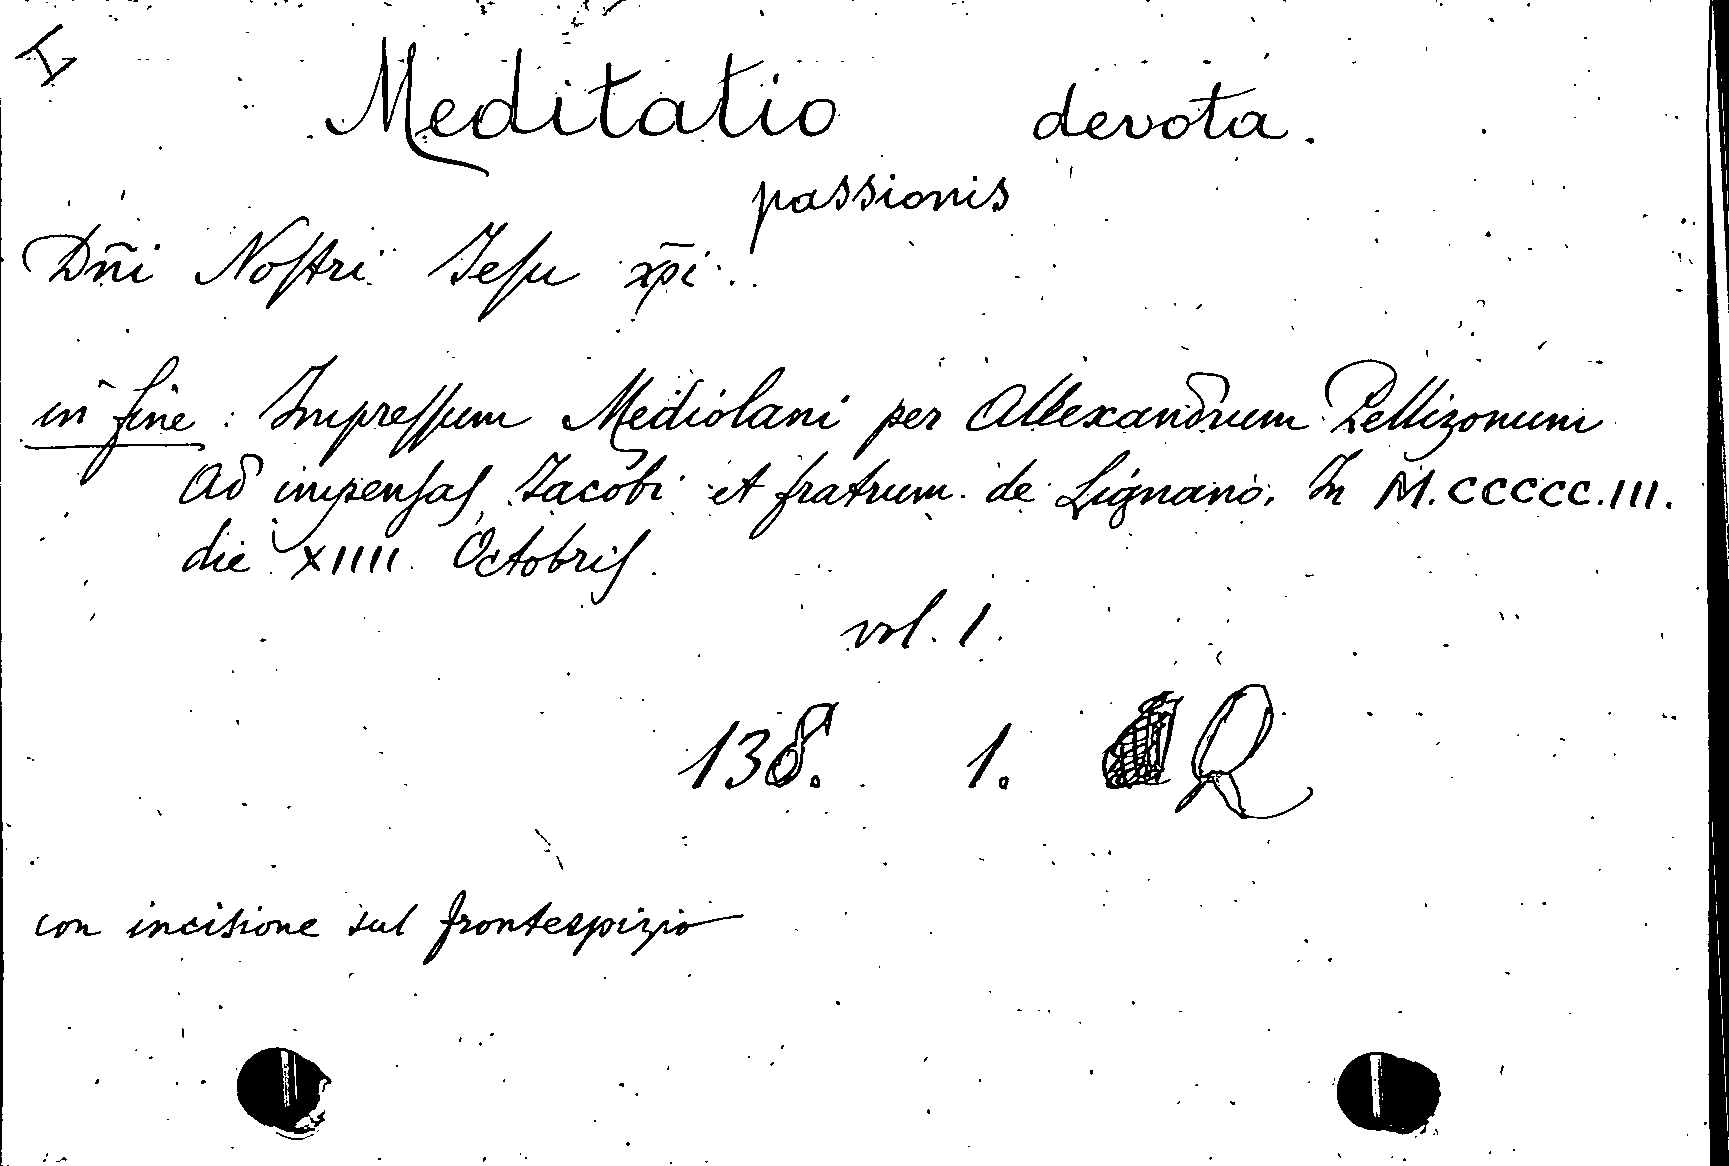 I
Meditatio devota.
passionis
Dñi Noſtri Ieſu xp̄i.
in fine: Impreſſum Mediolani per Allexandrum Pellizonum
Ad impenſas Iacobi et fratrum de Lignano. In M.CCCCC.III.
die XIIII Octobris.
vol. 1.
138. 1. Q
con incisione sul frontespizio